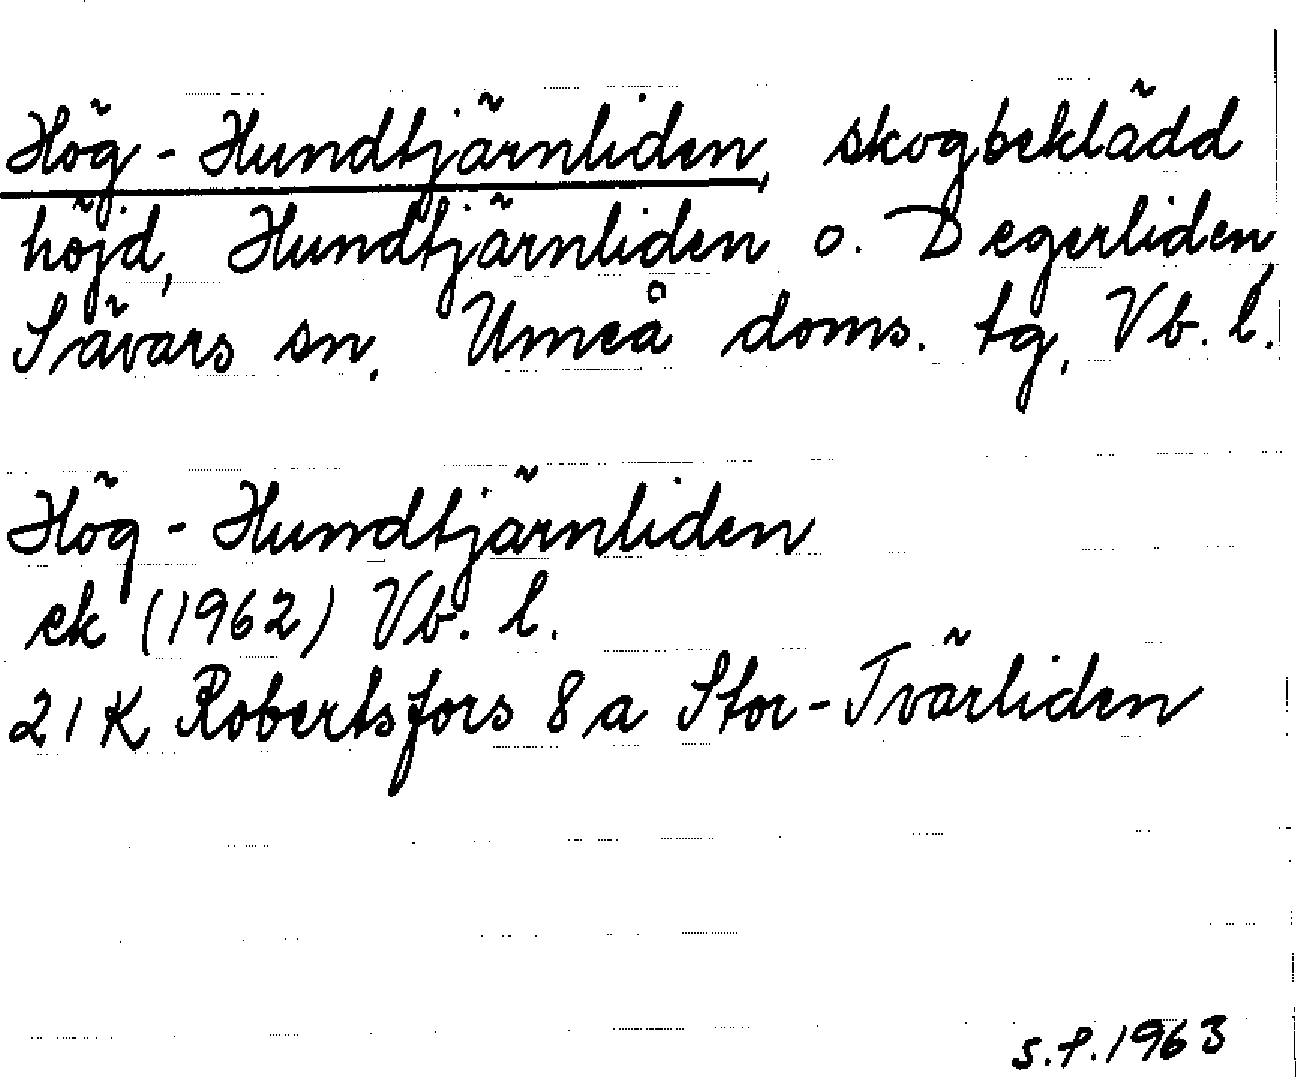 Hög-Hundtjärnliden, skogbeklädd
höjd, Hundtjärnliden o. Degerliden,
Sävars sn. Umeå doms. tg, Vb. l.
Hög-Hundtjärnliden
ek (1962) Vb. l.
21K Robertsfors 8a Stor-Tvärliden
S.P. 1963